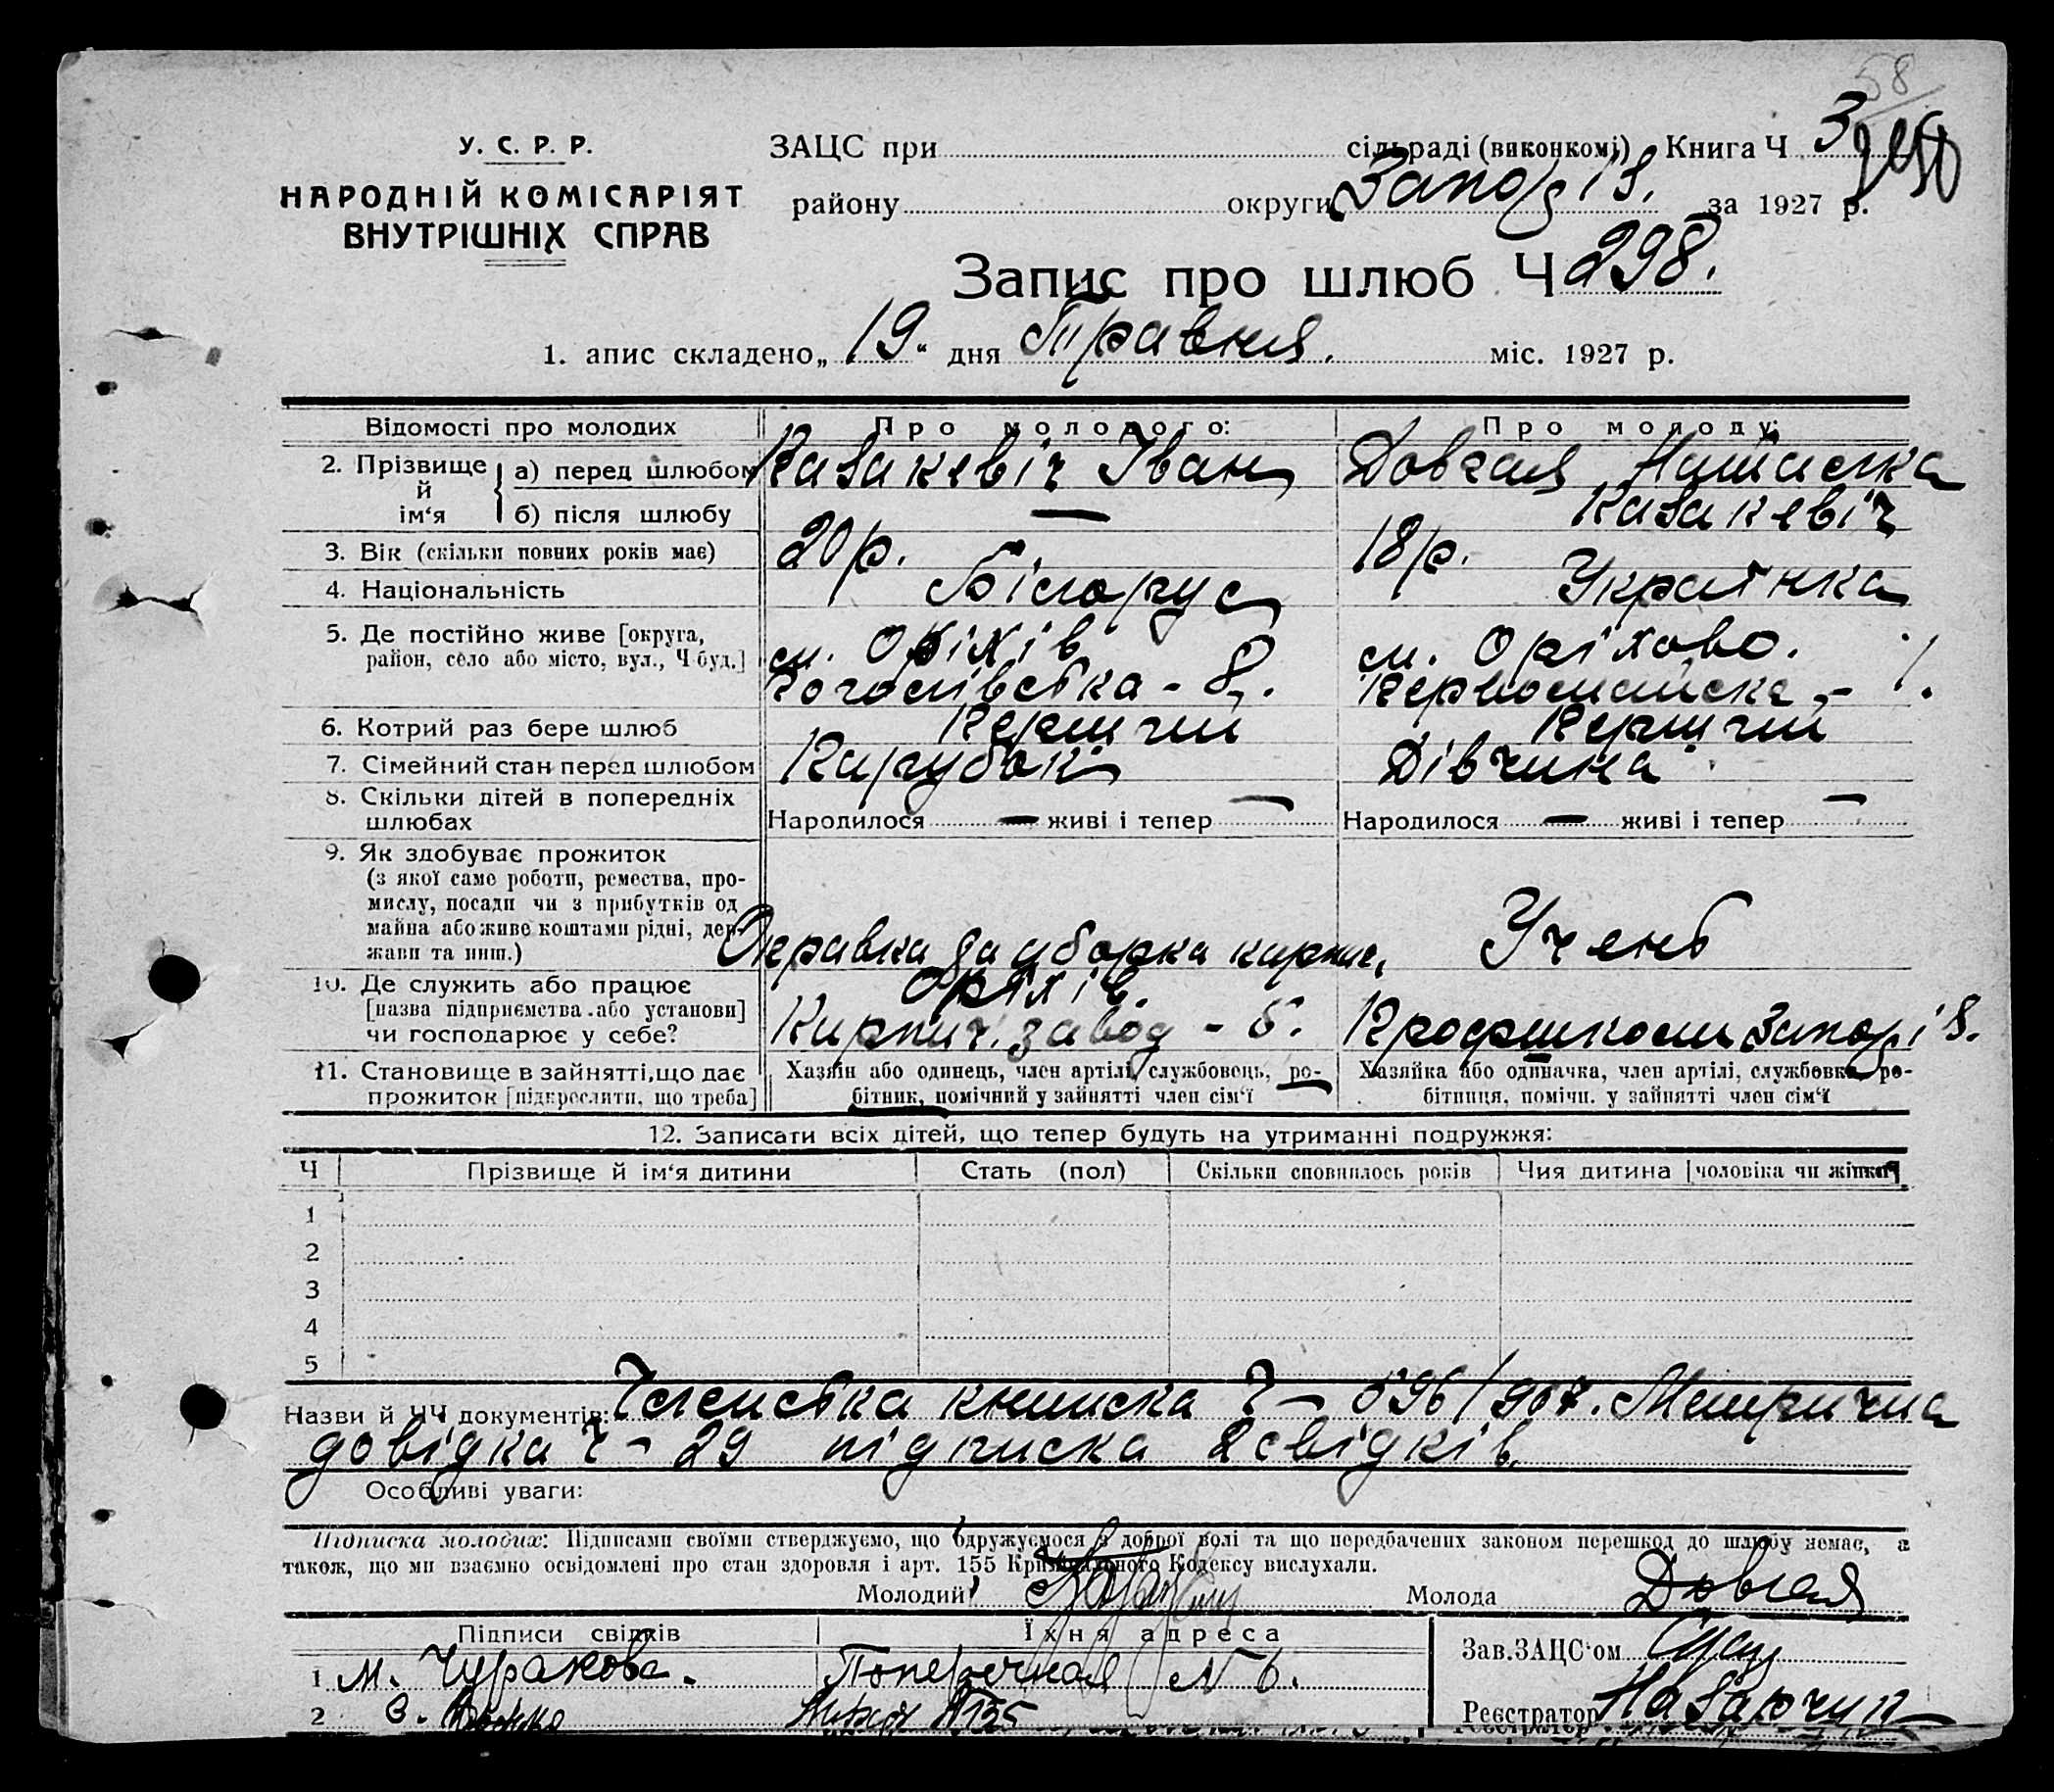 58
У. С. Р. Р.
НАРОДНІЙ КОМІСАРІЯТ
ВНУТРІШНІХ СПРАВ
ЗАЦС при сільраді (виконкомі) Книга Ч 3
району округи за 1927 р.
Запис про шлюб Ч 298.
1. апис складено „19“ дня Травня. міс. 1927 р.
Відомості про молодих Про молодого: Про молоду:
2. Прізвище й ім‘я а) перед шлюбом Казакевіч Іван Довгая Наталка
б) після шлюбу — Казакевіч
3. Вік (скільки повних років має) 20 р. 18 р.
4. Національність Білорус Українка
5. Де постійно живе [округа, м. Оріхів м. Оріхово.
район, село або місто, вул., Ч буд.] - 8. - 1.
6. Котрий раз бере шлюб Перший Перший
7. Сімейний стан перед шлюбом Парубок Дівчина
8. Скільки дітей в попередніх
шлюбах Народилося — живі і тепер — Народилося — живі і тепер —
9. Як здобуває прожиток
(з якої саме роботи, ремества, про-
мислу, посади чи з прибутків од
майна або живе коштами рідні, дер-
жави та инш.) да уборка кирпич. Учень
10. Де служить або працює Оріхів.
[назва підприємства або установи]
чи господарює у себе? Кирпич. завод - 5.
11. Становище в зайнятті, що дає Хазяїн або одинець, член артілі, службовець, ро- Хазяйка або одиначка, член артілі, службовка, ро-
прожиток [підкреслити, що треба] бітник, помічний у зайнятті член сім‘ї бітниця, помічн. у зайнятті член сім‘ї
12. Записати всіх дітей, що тепер будуть на утриманні подружжя:
Ч Прізвище й ім‘я дитини Стать (пол) Скільки сповнилось років Чия дитина [чоловіка чи жінки]
1
2
3
4
5
Назви й ЧЧ документів: книжка Ч - 596/907. Метрична
довідка Ч - 29 підписка 2 свідків.
Особливі уваги:
Підписка молодих: Підписами своїми стверджуємо, що одружуємося з доброї волі та що передбачених законом перешкод до шлюбу немає, а
також, що ми взаємно освідомлені про стан здоровля і арт. 155 Кримінального Кодексу вислухали.
Молодий Молода Довгая
Підписи свідків Їхня адреса
Зав. ЗАЦС‘ом
1 М. Чуракова. Поперечная N 6.
Реєстратор
2